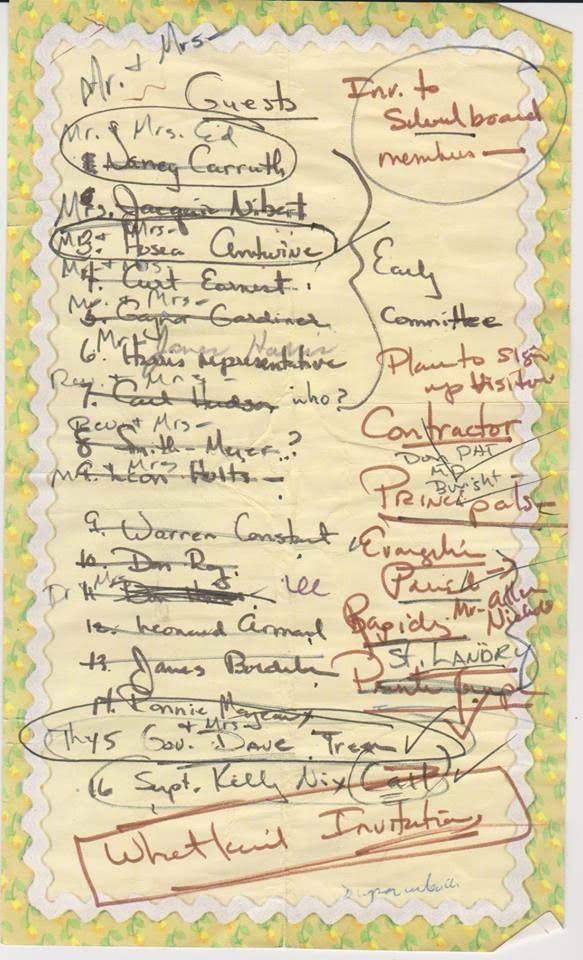 Mr. + Mrs-
Guests
Mr. & Mrs. Cid
Nancy Carruth
Mrs. Jacquin Nibert
Mr + Mrs-
3. Hosea Antwine
Mr + Mrs
4. Curt Earnest
Mr. + Mrs-
5. Gaynor Gardiner
Mr +
6. representative
James Harris
Rev. + Mrs
7. Carl Hudson who?
Rev + Mrs-
8 Smith-Meyer ..?
Mr + Mrs
9. Leon Holts -
9. Warren Constant
10. Don Roy
Dr + Mrs
11. Lee
12. Leonard Armand
13. James Bordelon
14. Ronnie Mayeaux
+ Mrs-
Gov. Dave Treen
16 Supt. Kelly Nix Call
What kind Invitations
Inv. to
School board
members —
Early
Committee
Plan to sign
up Visitors
Contractor
Don PAT
Principals -
Evangeline
Parish
Rapides Mr- Allen
Nixado
St. LANDRY